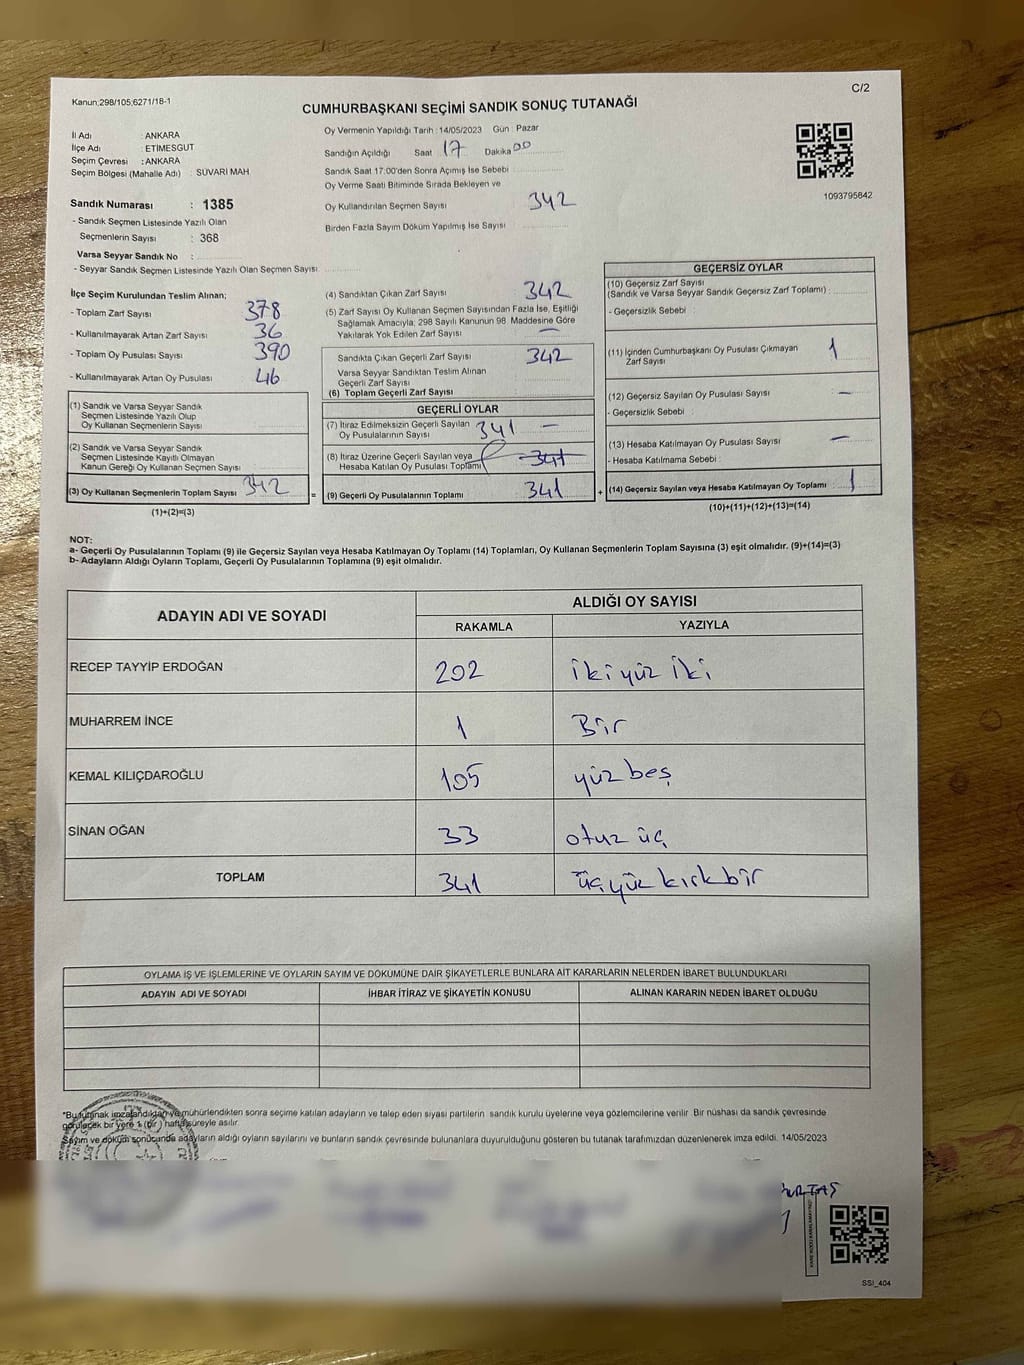 Kanun;298/105;6271/18-1
C/2
CUMHURBAŞKANI SEÇİMİ SANDIK SONUÇ TUTANAĞI
İl Adı : ANKARA
İlçe Adı : ETİMESGUT
Seçim Çevresi : ANKARA
Seçim Bölgesi (Mahalle Adı) : SÜVARİ MAH
Sandık Numarası : 1385
- Sandık Seçmen Listesinde Yazılı Olan
Seçmenlerin Sayısı : 368
Varsa Seyyar Sandık No :
- Seyyar Sandık Seçmen Listesinde Yazılı Olan Seçmen Sayısı
Oy Vermenin Yapıldığı Tarih : 14/05/2023 Gün : Pazar
Sandığın Açıldığı Saat 17 Dakika 00
Sandık Saat 17:00'den Sonra Açımış İse Sebebi
Oy Verme Saati Bitiminde Sırada Bekleyen ve
Oy Kullandırılan Seçmen Sayısı 342
Birden Fazla Sayım Döküm Yapılmış İse Sayısı
1093795842
İlçe Seçim Kurulundan Teslim Alınan;
- Toplam Zarf Sayısı 378
- Kullanılmayarak Artan Zarf Sayısı 36
- Toplam Oy Pusulası Sayısı 390
- Kullanılmayarak Artan Oy Pusulası 46
(1) Sandık ve Varsa Seyyar Sandık
Seçmen Listesinde Yazılı Olup
Oy Kullanan Seçmenlerin Sayısı
(2) Sandık ve Varsa Seyyar Sandık
Seçmen Listesinde Kayıtlı Olmayan
Kanun Gereği Oy Kullanan Seçmen Sayısı
(3) Oy Kullanan Seçmenlerin Toplam Sayısı 342
(1)+(2)=(3)
(4) Sandıktan Çıkan Zarf Sayısı 342
(5) Zarf Sayısı Oy Kullanan Seçmen Sayısından Fazla İse, Eşitliği
Sağlamak Amacıyla; 298 Sayılı Kanunun 98. Maddesine Göre
Yakılarak Yok Edilen Zarf Sayısı —
Sandıkta Çıkan Geçerli Zarf Sayısı 342
Varsa Seyyar Sandıktan Teslim Alınan
Geçerli Zarf Sayısı
(6) Toplam Geçerli Zarf Sayısı
GEÇERLİ OYLAR
(7) İtiraz Edilmeksizin Geçerli Sayılan
Oy Pusulalarının Sayısı 341 —
(8) İtiraz Üzerine Geçerli Sayılan veya
Hesaba Katılan Oy Pusulası Toplamı 341
= (9) Geçerli Oy Pusulalarının Toplamı 341
GEÇERSİZ OYLAR
(10) Geçersiz Zarf Sayısı
(Sandık ve Varsa Seyyar Sandık Geçersiz Zarf Toplamı) :
- Geçersizlik Sebebi :
(11) İçinden Cumhurbaşkanı Oy Pusulası Çıkmayan
Zarf Sayısı 1
(12) Geçersiz Sayılan Oy Pusulası Sayısı —
- Geçersizlik Sebebi :
(13) Hesaba Katılmayan Oy Pusulası Sayısı —
- Hesaba Katılmama Sebebi :
+ (14) Geçersiz Sayılan veya Hesaba Katılmayan Oy Toplamı : 1
(10)+(11)+(12)+(13)=(14)
NOT:
a- Geçerli Oy Pusulalarının Toplamı (9) ile Geçersiz Sayılan veya Hesaba Katılmayan Oy Toplamı (14) Toplamları, Oy Kullanan Seçmenlerin Toplam Sayısına (3) eşit olmalıdır. (9)+(14)=(3)
b- Adayların Aldığı Oyların Toplamı, Geçerli Oy Pusulalarının Toplamına (9) eşit olmalıdır.
ADAYIN ADI VE SOYADI
ALDIĞI OY SAYISI
RAKAMLA YAZIYLA
RECEP TAYYİP ERDOĞAN 202 iki yüz iki
MUHARREM İNCE 1 Bir
KEMAL KILIÇDAROĞLU 105 yüz beş
SİNAN OĞAN 33 otuz üç
TOPLAM 341 üç yüz kırk bir
OYLAMA İŞ VE İŞLEMLERİNE VE OYLARIN SAYIM VE DÖKÜMÜNE DAİR ŞİKAYETLERLE BUNLARA AİT KARARLARIN NELERDEN İBARET BULUNDUKLARI
ADAYIN ADI VE SOYADI İHBAR İTİRAZ VE ŞİKAYETİN KONUSU ALINAN KARARIN NEDEN İBARET OLDUĞU
*Bu tutanak imzalandıktan ve mühürlendikten sonra seçime katılan adayların ve talep eden siyasi partilerin sandık kurulu üyelerine veya gözlemcilerine verilir. Bir nüshası da sandık çevresinde
görülecek bir yere 1 (bir) hafta süreyle asılır.
Sayım ve döküm sonucunda adayların aldığı oyların sayılarını ve bunların sandık çevresinde bulunanlara duyurulduğunu gösteren bu tutanak tarafımızdan düzenlenerek imza edildi. 14/05/2023
SSI_404